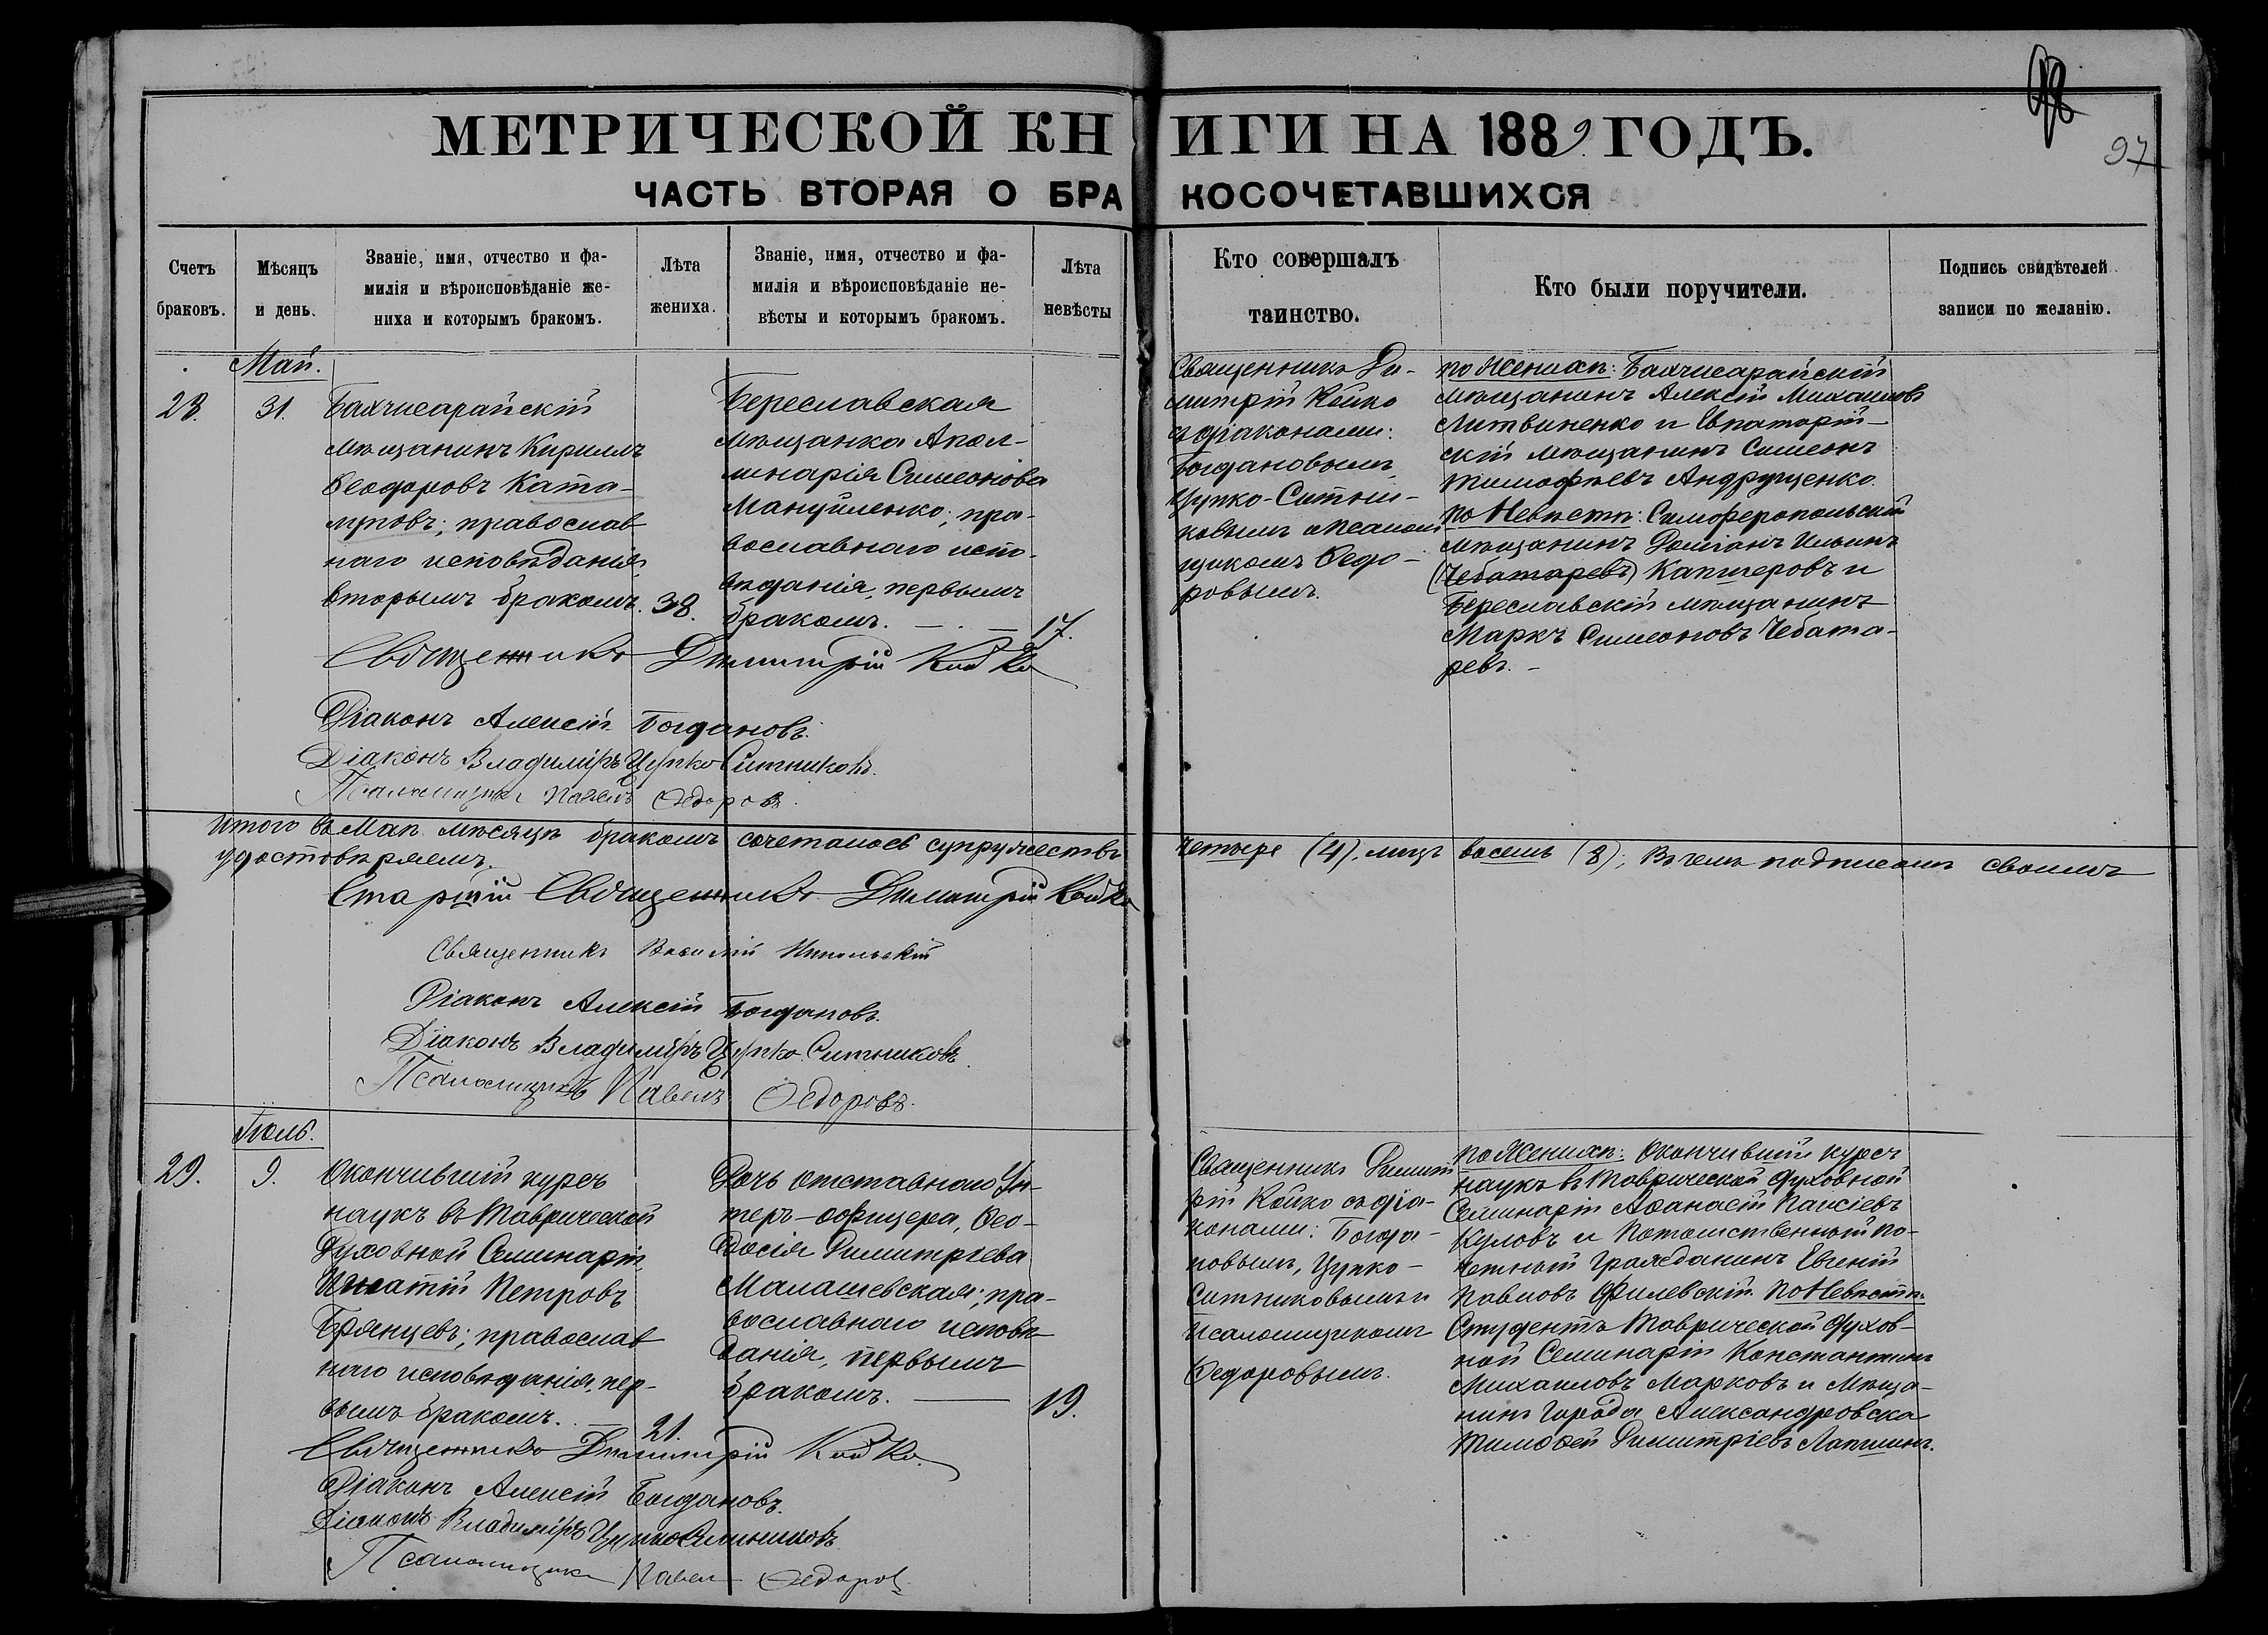 98
97
МЕТРИЧЕСКОЙ КНИГИ НА 1889 ГОДЪ.
ЧАСТЬ ВТОРАЯ О БРАКОСОЧЕТАВШИХСЯ
Счетъ
браковъ.
Мѣсяцъ
и день.
Званіе, имя, отчество и фа-
милія и вѣроисповѣданіе же-
ниха и которымъ бракомъ.
Лѣта
жениха.
Званіе, имя, отчество и фа-
милія и вѣроисповѣданіе не-
вѣсты и которымъ бракомъ.
Лѣта
невѣсты
Кто совершалъ
таинство.
Кто были поручители.
Подпись свидѣтелей
записи по желанію.
Май.
28.
31.
Бахчисарайскій
мѣщанинъ Кириллъ
Ѳеодоровъ Ката-
православ
наго исповѣданія,
вторымъ бракомъ.
38.
Береславская
мѣщанка Апол-
линарія Симеонова
Мануйленко; пра-
вославнаго испо-
вѣданія, первымъ
бракомъ. — . —
17.
Священникъ Ди-
митрій Койко
съ діаконами:
Богдановымъ,
Цупко-Ситни-
ковымъ и псалом
щикомъ Ѳедо-
ровымъ.
по Женихѣ: Бахчисарайскій
мѣщанинъ Алексій Михаиловъ
Литвиненко и Евпаторій-
скій мѣщанинъ Симеонъ
Тимофѣевъ Андрущенко.
по Невѣстѣ: Симферопольскій
мѣщанинъ Доміанъ Ильинъ
(Чебатаревъ) Капшеровъ и
Береславскій мѣщанинъ
Маркъ Симеоновъ Чебата-
ревъ. –
Священникъ Димитрій Койко
Діаконъ Алексій Богдановъ.
Діаконъ Владиміръ Цупко Ситниковъ.
Псаломщикъ Павелъ Ѳедоровъ.
Итого въ Маѣ мѣсяцѣ бракомъ сочеталось супружествъ четыре (4), лицъ восемь (8), въ чемъ подписомъ своимъ
удостовѣряемъ.
Старшій Священникъ Димитрій Койко
Священникъ Василій Никольскій
Діаконъ Алексій Богдановъ.
Діаконъ Владиміръ Цупко-Ситниковъ.
Псаломщикъ Павелъ Ѳедоровъ.
Іюль.
29.
9.
Окончившій курсъ
наукъ въ Таврической
Духовной Семинаріи,
Игнатій Петровъ
Брянцевъ; православ
наго исповѣданія, пер-
вымъ бракомъ. —
21.
Дочь отставного Ун-
теръ-офицера, Ѳео-
досія Димитріева
Малашевская; пра-
вославнаго исповѣ-
данія, первымъ
бракомъ. —
19.
Священникъ Димит
рій Койко съ діа-
конами: Богда-
новымъ, Цупко-
Ситниковымъ и
псаломщикомъ
Ѳедоровымъ.
по Женихѣ: Окончившій курсъ
наукъ въ Таврической Духовной
Семинаріи Аѳанасій Паисіевъ
Куловъ и Потомственный по-
четный Гражданинъ Евгеній
Павловъ Филевскій. по Невѣстѣ:
Студентъ Таврической Духов-
ной Семинаріи Константинъ
Михаиловъ Марковъ и Мѣща-
нинъ Города Александровска
Тимоѳей Димитріевъ Лапшинъ.
Священникъ Димитрій Койко.
Діаконъ Алексій Богдановъ.
Діаконъ Владиміръ Цупко Ситниковъ
Псаломщикъ Павелъ Ѳедоровъ